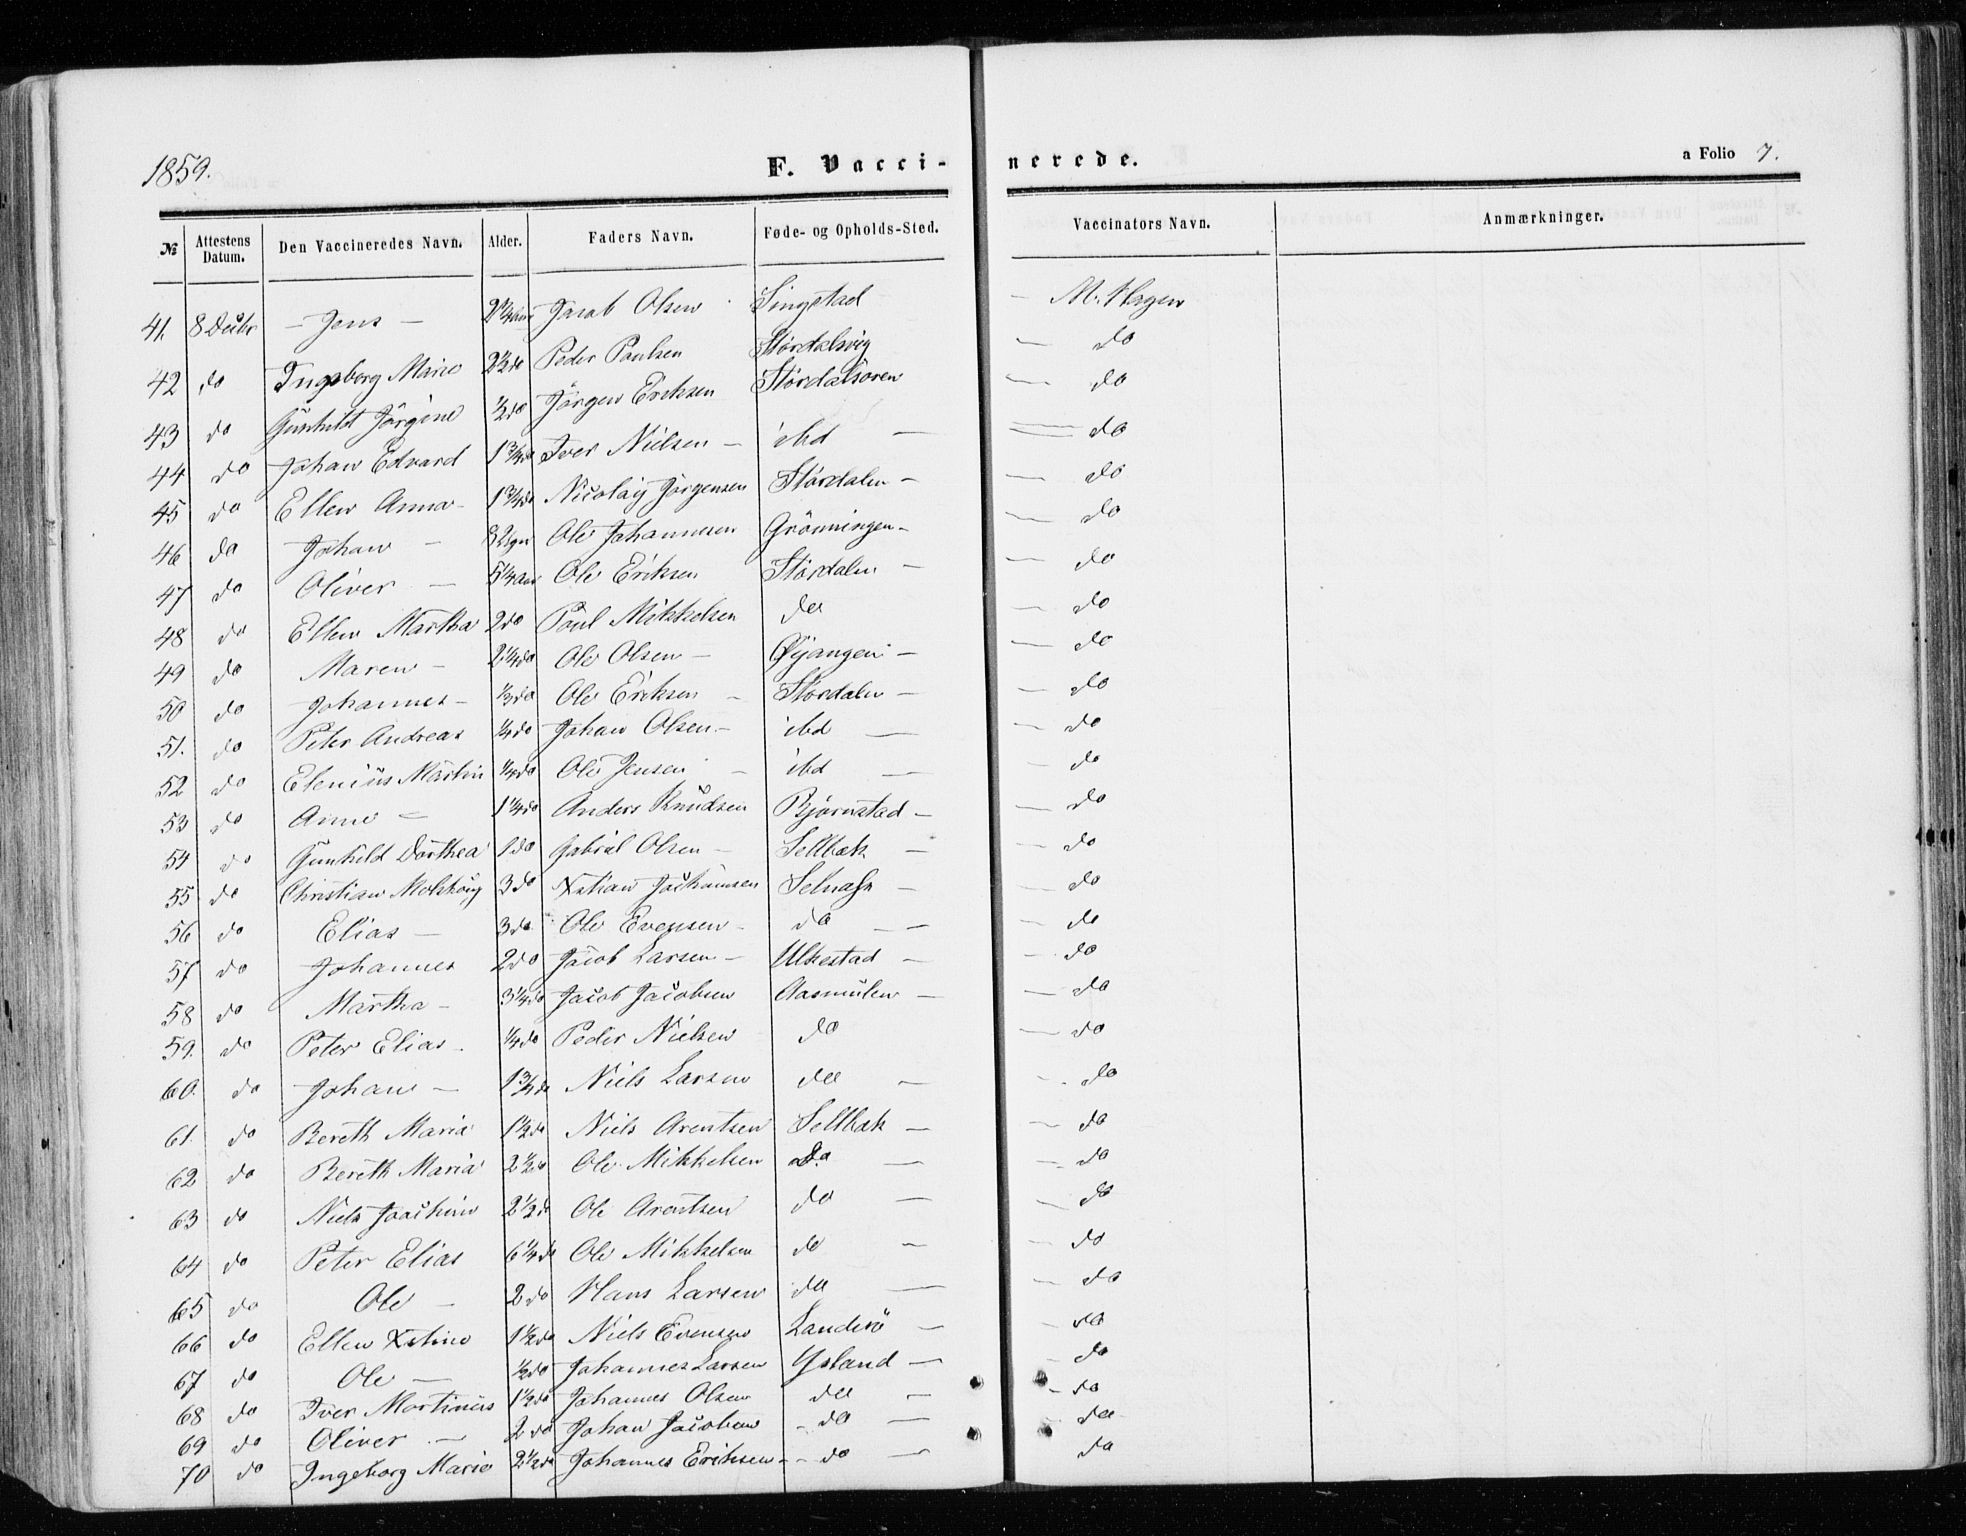 1859. F. Vacci- nerede. a Folio 7.
№ Attestens Datum. Den Vaccineredes Navn. Alder. Faders Navn. Føde- og Opholds-Sted. Vaccinators Navn. Anmærkninger.
41. 8 Decbr – Jens – 2¼ Aar Jacob Olsen Singstad – M. Hagen
42 do Ingeborg Marie 2½ do Peder Paulsen Størdalsvig — do
43 do Gunhild Jørgine ½ do Jørgen Eriksen Størdalsøren — do
44 do Johan Edvard 1¾ do Iver Nielsen – ibd — do
45 do Ellen Anna – 1¾ do Nicolay Jørgensen Størdalen – — do
46 do Johan – Ole Johannesen Grönningen – — do
47 do Oliver – 5¼ Aar Ole Eriksen Størdalen — — do
48 do Ellen Martha 2 do Paul Mikkelsen do — do
49 do Maren – 2¼ do Ole Olsen – Øyangen – — do
50 do Johannes – ⅓ do Ole Eriksen – Størdalen – — do
51. do Peter Andreas ¼ do Johan Olsen – ibd — — do
52 do Elenius Martin ¼ do Ole Jensen – ibd — — do
53 do Anne – 1¼ do Anders Knudsen Bjørnstad – — do
54 do Gunhild Dorthea 1 do Gabriel Olsen – Selbæk — — do
55 do Christian 3 do Xstian Selnæss – — do
56 do Elias – 3 do Ole Evensen – do — — do
57 do Johannes 2 do Jacob Larsen – Ulkestad – — do
58 do Martha – 3¼ do Jacob Jacobsen Aasmulen – — do
59. do Peter Elias – ¼ do Peder Nielsen do — do
60. do Johan – 1¾ do Niels Larsen do — — do
61. do Bereth Maria 1½ do Niels Arentsen Selbæk – — do
62 do Bereth Maria 2½ do Ole Mikkelsen do — — do
63 do Niels Joachim 2½ do Ole Arentsen do — — do
64 do Peter Elias 6¼ do Ole Mikkelsen do — — do
65 do Ole – 2 do Hans Larsen do — — do
66 do Ellen Xstine 1½ do Niels Evensen Landrø — — do
67 do Ole – ½ do Johannes Larsen Ysland — — do
68 do Iver Martinus 1½ do Johannes Olsen do — — do
69 do Oliver – 2 do Johan Jacobsen – do — do
70 do Ingeborg Marie 2½ do Johannes Eriksen – – do — do